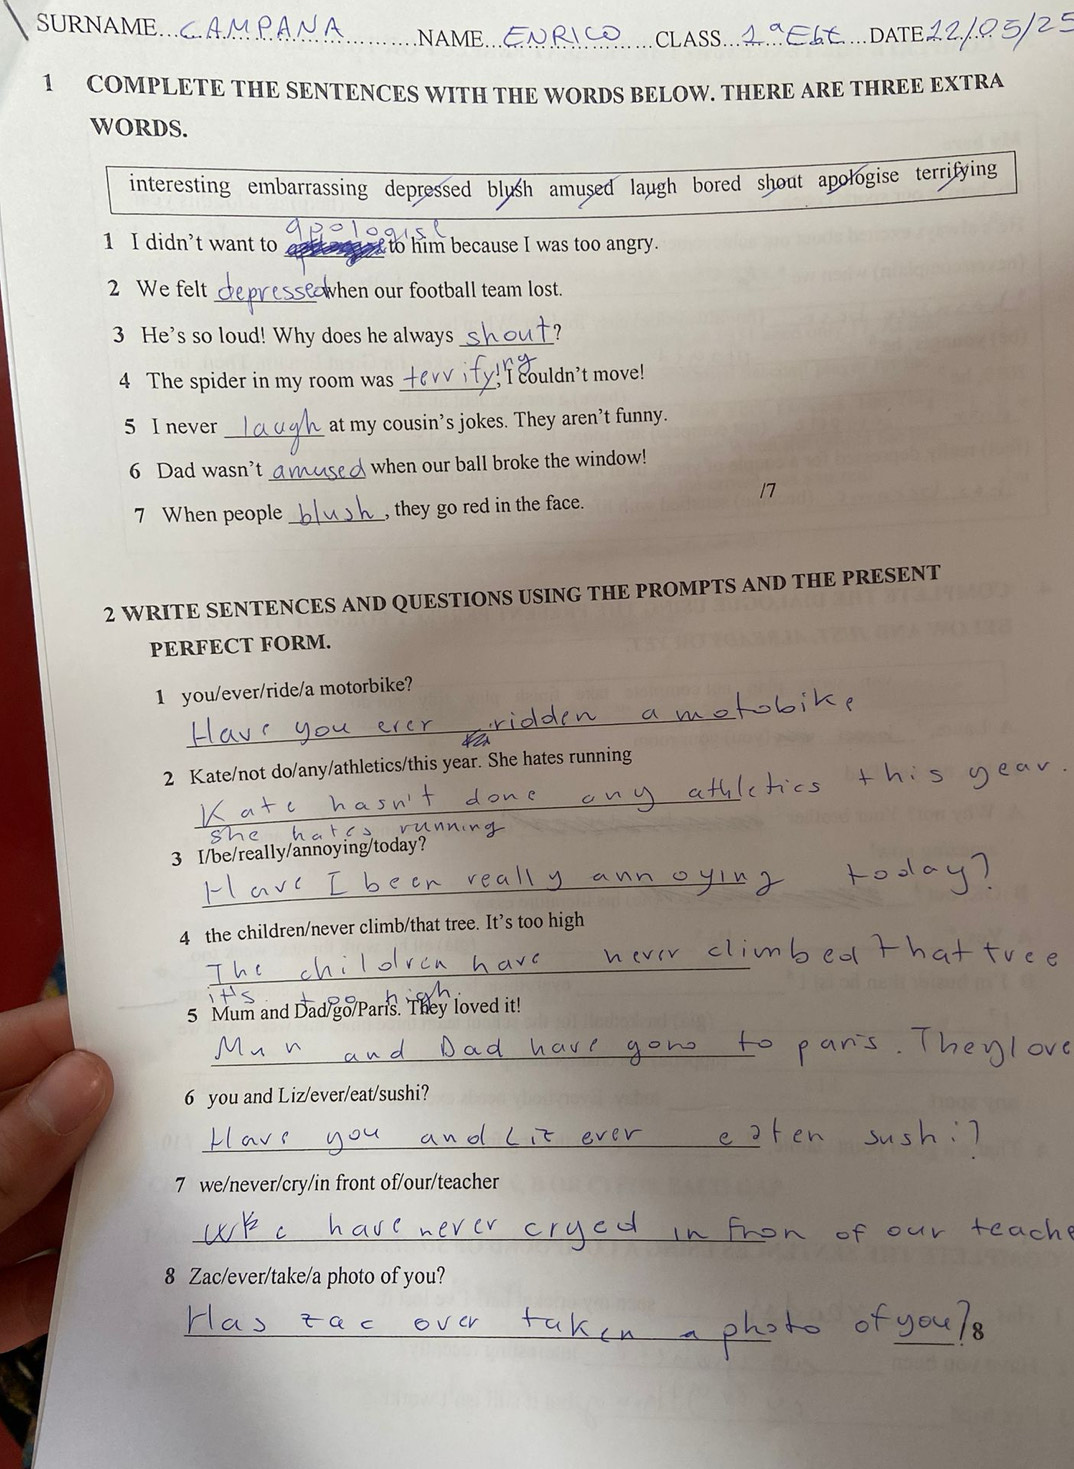 SURNAME...CAMPANA............NAME...ENRICO......CLASS...1ªEbt...DATE 22/05/25
1 COMPLETE THE SENTENCES WITH THE WORDS BELOW. THERE ARE THREE EXTRA
WORDS.
interesting embarrassing depressed blush amused laugh bored shout apologise terrifying
1 I didn't want to apologise to him because I was too angry.
2 We felt depressed when our football team lost.
3 He's so loud! Why does he always shout?
4 The spider in my room was terrifying; I couldn't move!
5 I never laugh at my cousin's jokes. They aren't funny.
6 Dad wasn't amused when our ball broke the window!
7 When people blush, they go red in the face.
/7
2 WRITE SENTENCES AND QUESTIONS USING THE PROMPTS AND THE PRESENT
PERFECT FORM.
1 you/ever/ride/a motorbike?
Have you ever ridden a motobike
2 Kate/not do/any/athletics/this year. She hates running
Kate hasn't done any athletics this year.
she hates running
3 I/be/really/annoying/today?
Have I been really annoying today?
4 the children/never climb/that tree. It's too high
The children have never climbed that tree
it's too high.
5 Mum and Dad/go/Paris. They loved it!
Mun and Dad have gone to paris. They love
6 you and Liz/ever/eat/sushi?
Have you and Liz ever eaten sushi?
7 we/never/cry/in front of/our/teacher
We have never cryed in fron of our teache
8 Zac/ever/take/a photo of you?
Has zac ever taken a photo of you?
/8